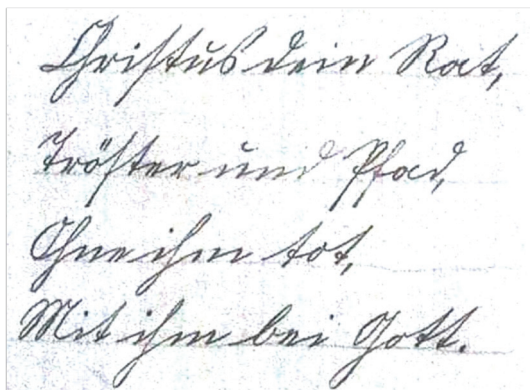 Christus dein Rat,
Tröster und Pfad,
Ohne ihm tot,
Mit ihm bei Gott.